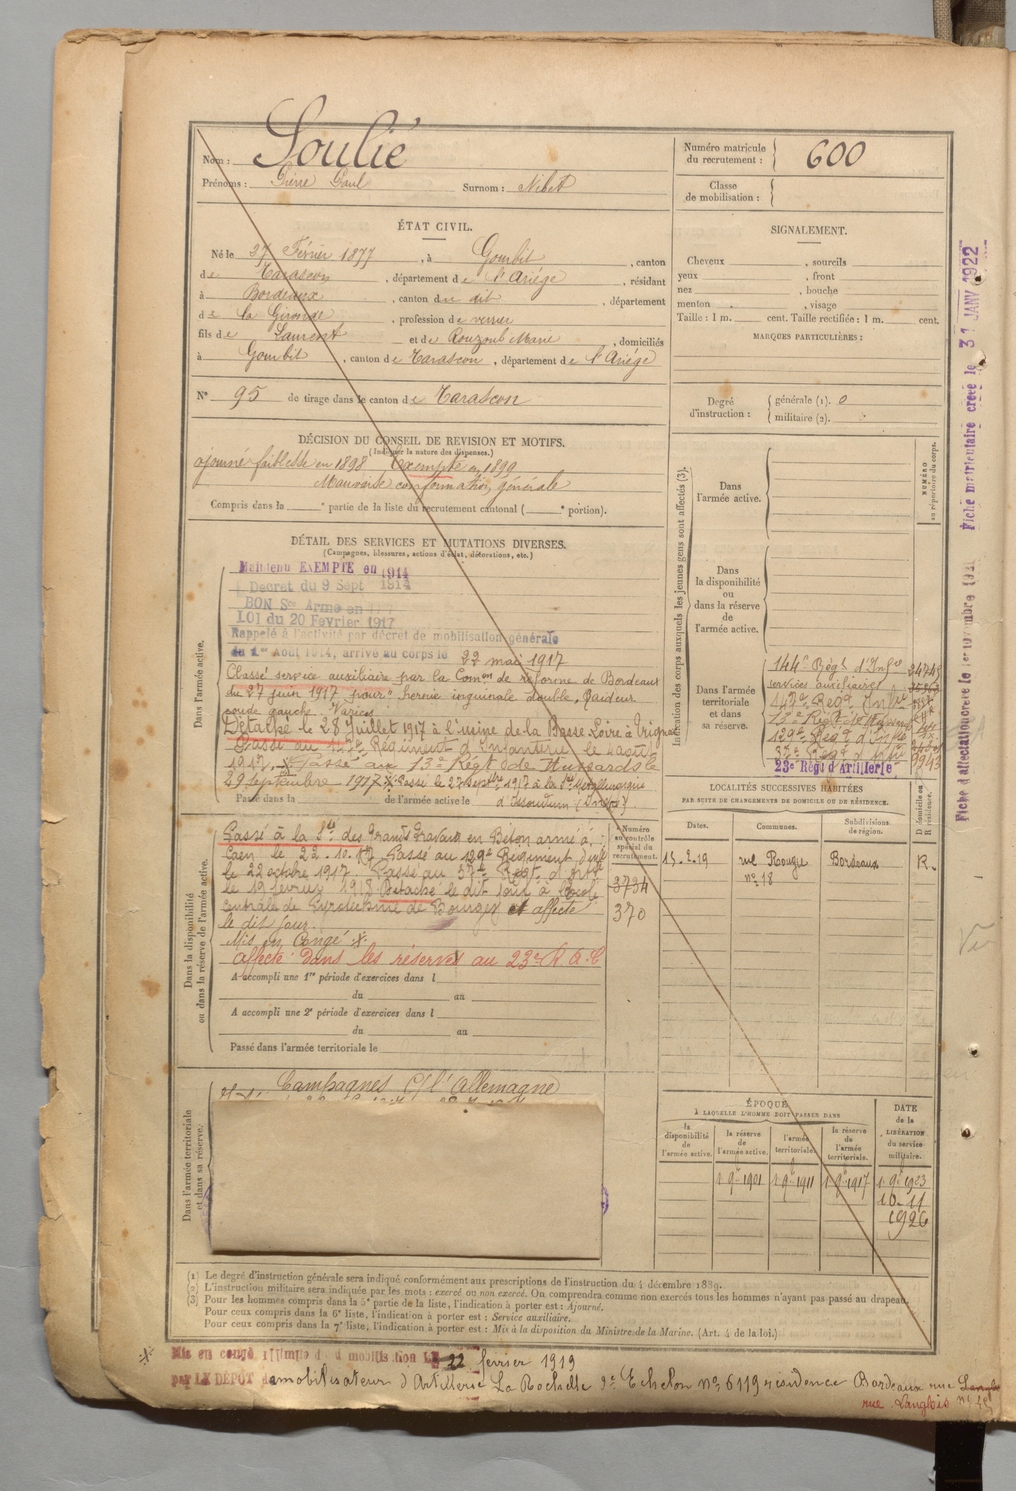 Nom : Soulié
Prénoms : Pierre Paul Surnom : Nibet
Numéro matricule du recrutement : 600
Classe de mobilisation :
ÉTAT CIVIL.
Né le 27 Février 1877, à Gourbit, canton
de Tarascon, département de l'Ariége, résidant
à Bordeaux, canton du dit, département
de la Gironde, profession de verrier
fils de Laurent et de Rouzoul Marie, domiciliés
à Gourbit, canton de Tarascon, département de l'Ariége
N° 95 de tirage dans le canton de Tarascon
SIGNALEMENT.
Cheveux , sourcils
yeux , front
nez , bouche
menton , visage
Taille : 1 m. cent. Taille rectifiée : 1 m. cent.
MARQUES PARTICULIÈRES :
Degré d'instruction :
générale (1). 0
militaire (2).
DÉCISION DU CONSEIL DE REVISION ET MOTIFS.
(Indiquer la nature des dispenses.)
ajourné faiblesse en 1898 Exempté en 1899
Mauvaise conformation générale
Compris dans la ° partie de la liste du recrutement cantonal ( ° portion).
DÉTAIL DES SERVICES ET MUTATIONS DIVERSES.
(Campagnes, blessures, actions d'éclat, décorations, etc.)
Dans l'armée active.
Maintenu EXEMPTE en 1914
Décret du 9 Sept 1914
BON Sce Armé en
LOI du 20 Février 1917
Rappelé à l'activité par décret de mobilisation générale
du 1er Août 1914, arrivé au corps le 22 mai 1917
Classé service auxiliaire par la Comon de réforme de Bordeaux
du 27 juin 1917 pour "hernie inguinale double, Raideur
coude gauche. Varices
Détaché le 28 Juillet 1917 à l'usine de la Basse Loire à Trignac
Passé au Régiment d'Infanterie le
1917. Passé au 13e Régt de Hussards le
29 septembre 1917 Passé le 27 Septbre 1917 à la Sté Métallurgique
d'Issoudun (Indre).
Passé dans la de l'armée active le
Dans la disponibilité ou dans la réserve de l'armée active.
Passé à la Sté des Grands Travaux en Béton armé à
Caen le 22.10.17 Passé au 129e Régiment d'inf
le 22 octbre 1917. Passé au 37e Régt d'Artie
le 19 février 1918 Détaché le dit jour à l'école
centrale de Pyrotechnie de Bourges et affecté
le dit jour.
Mis en Congé
affecté dans les réserves au 23e R.A.C
A accompli une 1re période d'exercices dans l
du au
A accompli une 2e période d'exercices dans l
du au
Passé dans l'armée territoriale le
Numéro au contrôle spécial du recrutement.
3734
370
Dans l'armée territoriale et dans sa réserve.
Campagnes C/ l'Allemagne
Indication des corps auxquels les jeunes gens sont affectés (3).
NUMÉRO au répertoire du corps.
Dans l'armée active.
Dans la disponibilité ou dans la réserve de l'armée active.
Dans l'armée territoriale et dans sa réserve.
144e Régt d'Infie
services auxiliaires
13e Régt de Hussards
129e Régt d'Infie
37e Régt d'Artie
23e Régt d'Artillerie
LOCALITÉS SUCCESSIVES HABITÉES
PAR SUITE DE CHANGEMENTS DE DOMICILE OU DE RÉSIDENCE.
Dates. Communes. Subdivisions de région. D domicile ou R résidence.
15.2.19 rue Rougier Bordeaux R.
n° 18
ÉPOQUE
À LAQUELLE L'HOMME DOIT PASSER DANS
la disponibilité de l'armée active.
la réserve de l'armée active.
l'armée territoriale.
la réserve de l'armée territoriale.
DATE de la LIBÉRATION du service militaire.
1 9e 1901 1 9e 1911 1 9e 1917 1 9e 1923
10-11
1926
(1) Le degré d'instruction générale sera indiqué conformément aux prescriptions de l'instruction du 4 décembre 1889.
(2) L'instruction militaire sera indiquée par les mots : exercé ou non exercé. On comprendra comme non exercés tous les hommes n'ayant pas passé au drapeau.
(3) Pour les hommes compris dans la 5e partie de la liste, l'indication à porter est : Ajourné.
Pour ceux compris dans la 6e liste, l'indication à porter est : Service auxiliaire.
Pour ceux compris dans la 7e liste, l'indication à porter est : Mis à la disposition du Ministre de la Marine. (Art. 4 de la loi.)
Mis en congé illimité de démobilisation LE 22 février 1919
par LE DÉPOT démobilisateur d'Artillerie La Rochelle 2e Echelon n° 6119 résidence Bordeaux rue
rue Langlois
Fiche d'affectation créée le 1er novembre 1921 Fiche matriculaire créée le 31 JANV 1922